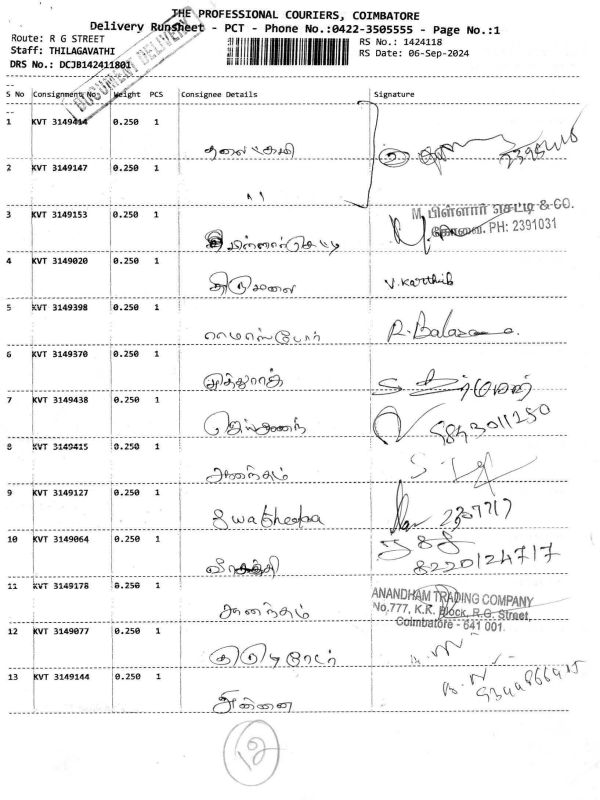 THE PROFESSIONAL COURIERS, COIMBATORE
Delivery Runsheet - PCT - Phone No.:0422-3505555 - Page No.:1
Route: R G STREET
RS No.: 1424118
Staff: THILAGAVATHI
RS Date: 06-Sep-2024
DRS No.: DCJB142411801
DOCUMENT DELIVERY
S No Consignment No. Weight PCS Consignee Details Signature
1 KVT 3149414 0.250 1
2 KVT 3149147 0.250 1
3 KVT 3149153 0.250 1
M. பிள்ளார் செட்டி & CO.
கோவை. PH: 2391031
4 KVT 3149020 0.250 1
திருமலை V.Karthik
5 KVT 3149398 0.250 1
R.Balaso
6 KVT 3149370 0.250 1
முத்துராத்
7 KVT 3149438 0.250 1
8 KVT 3149415 0.250 1
ஆனந்தம்
9 KVT 3149127 0.250 1
Swathedaa 2307717
10 KVT 3149064 0.250 1
8220124717
11 KVT 3149178 0.250 1
ஆனந்தம்
ANANDHAM TRADING COMPANY
No.777, K.K. Block, R.G. Street,
Coimbatore - 641 001.
12 KVT 3149077 0.250 1
13 KVT 3149144 0.250 1
அன்னை